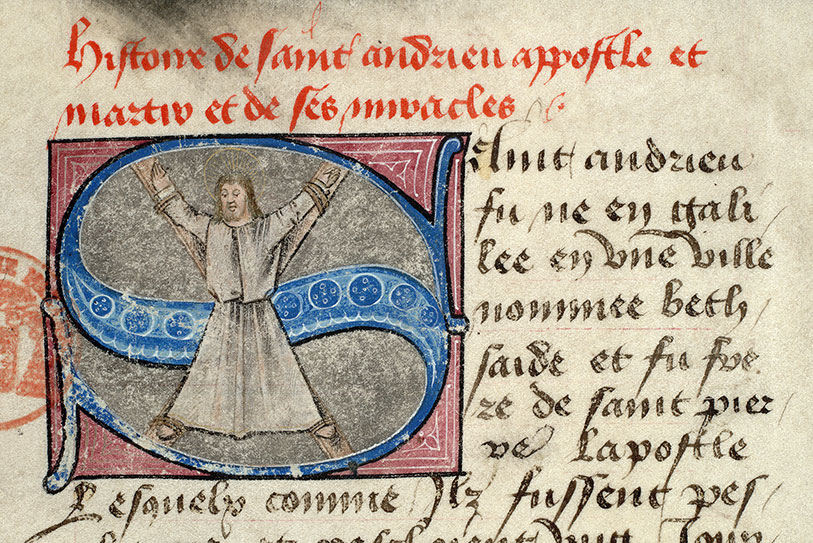 Histoire de saint andrieu appostle et
martir et de ses miracles
Saint andrieu
fu ne en gali
lee en vne ville
nommee beth
saide et fu fre
re de saint pier
re lapostle
Lesquelx comme Ilz fussent pes